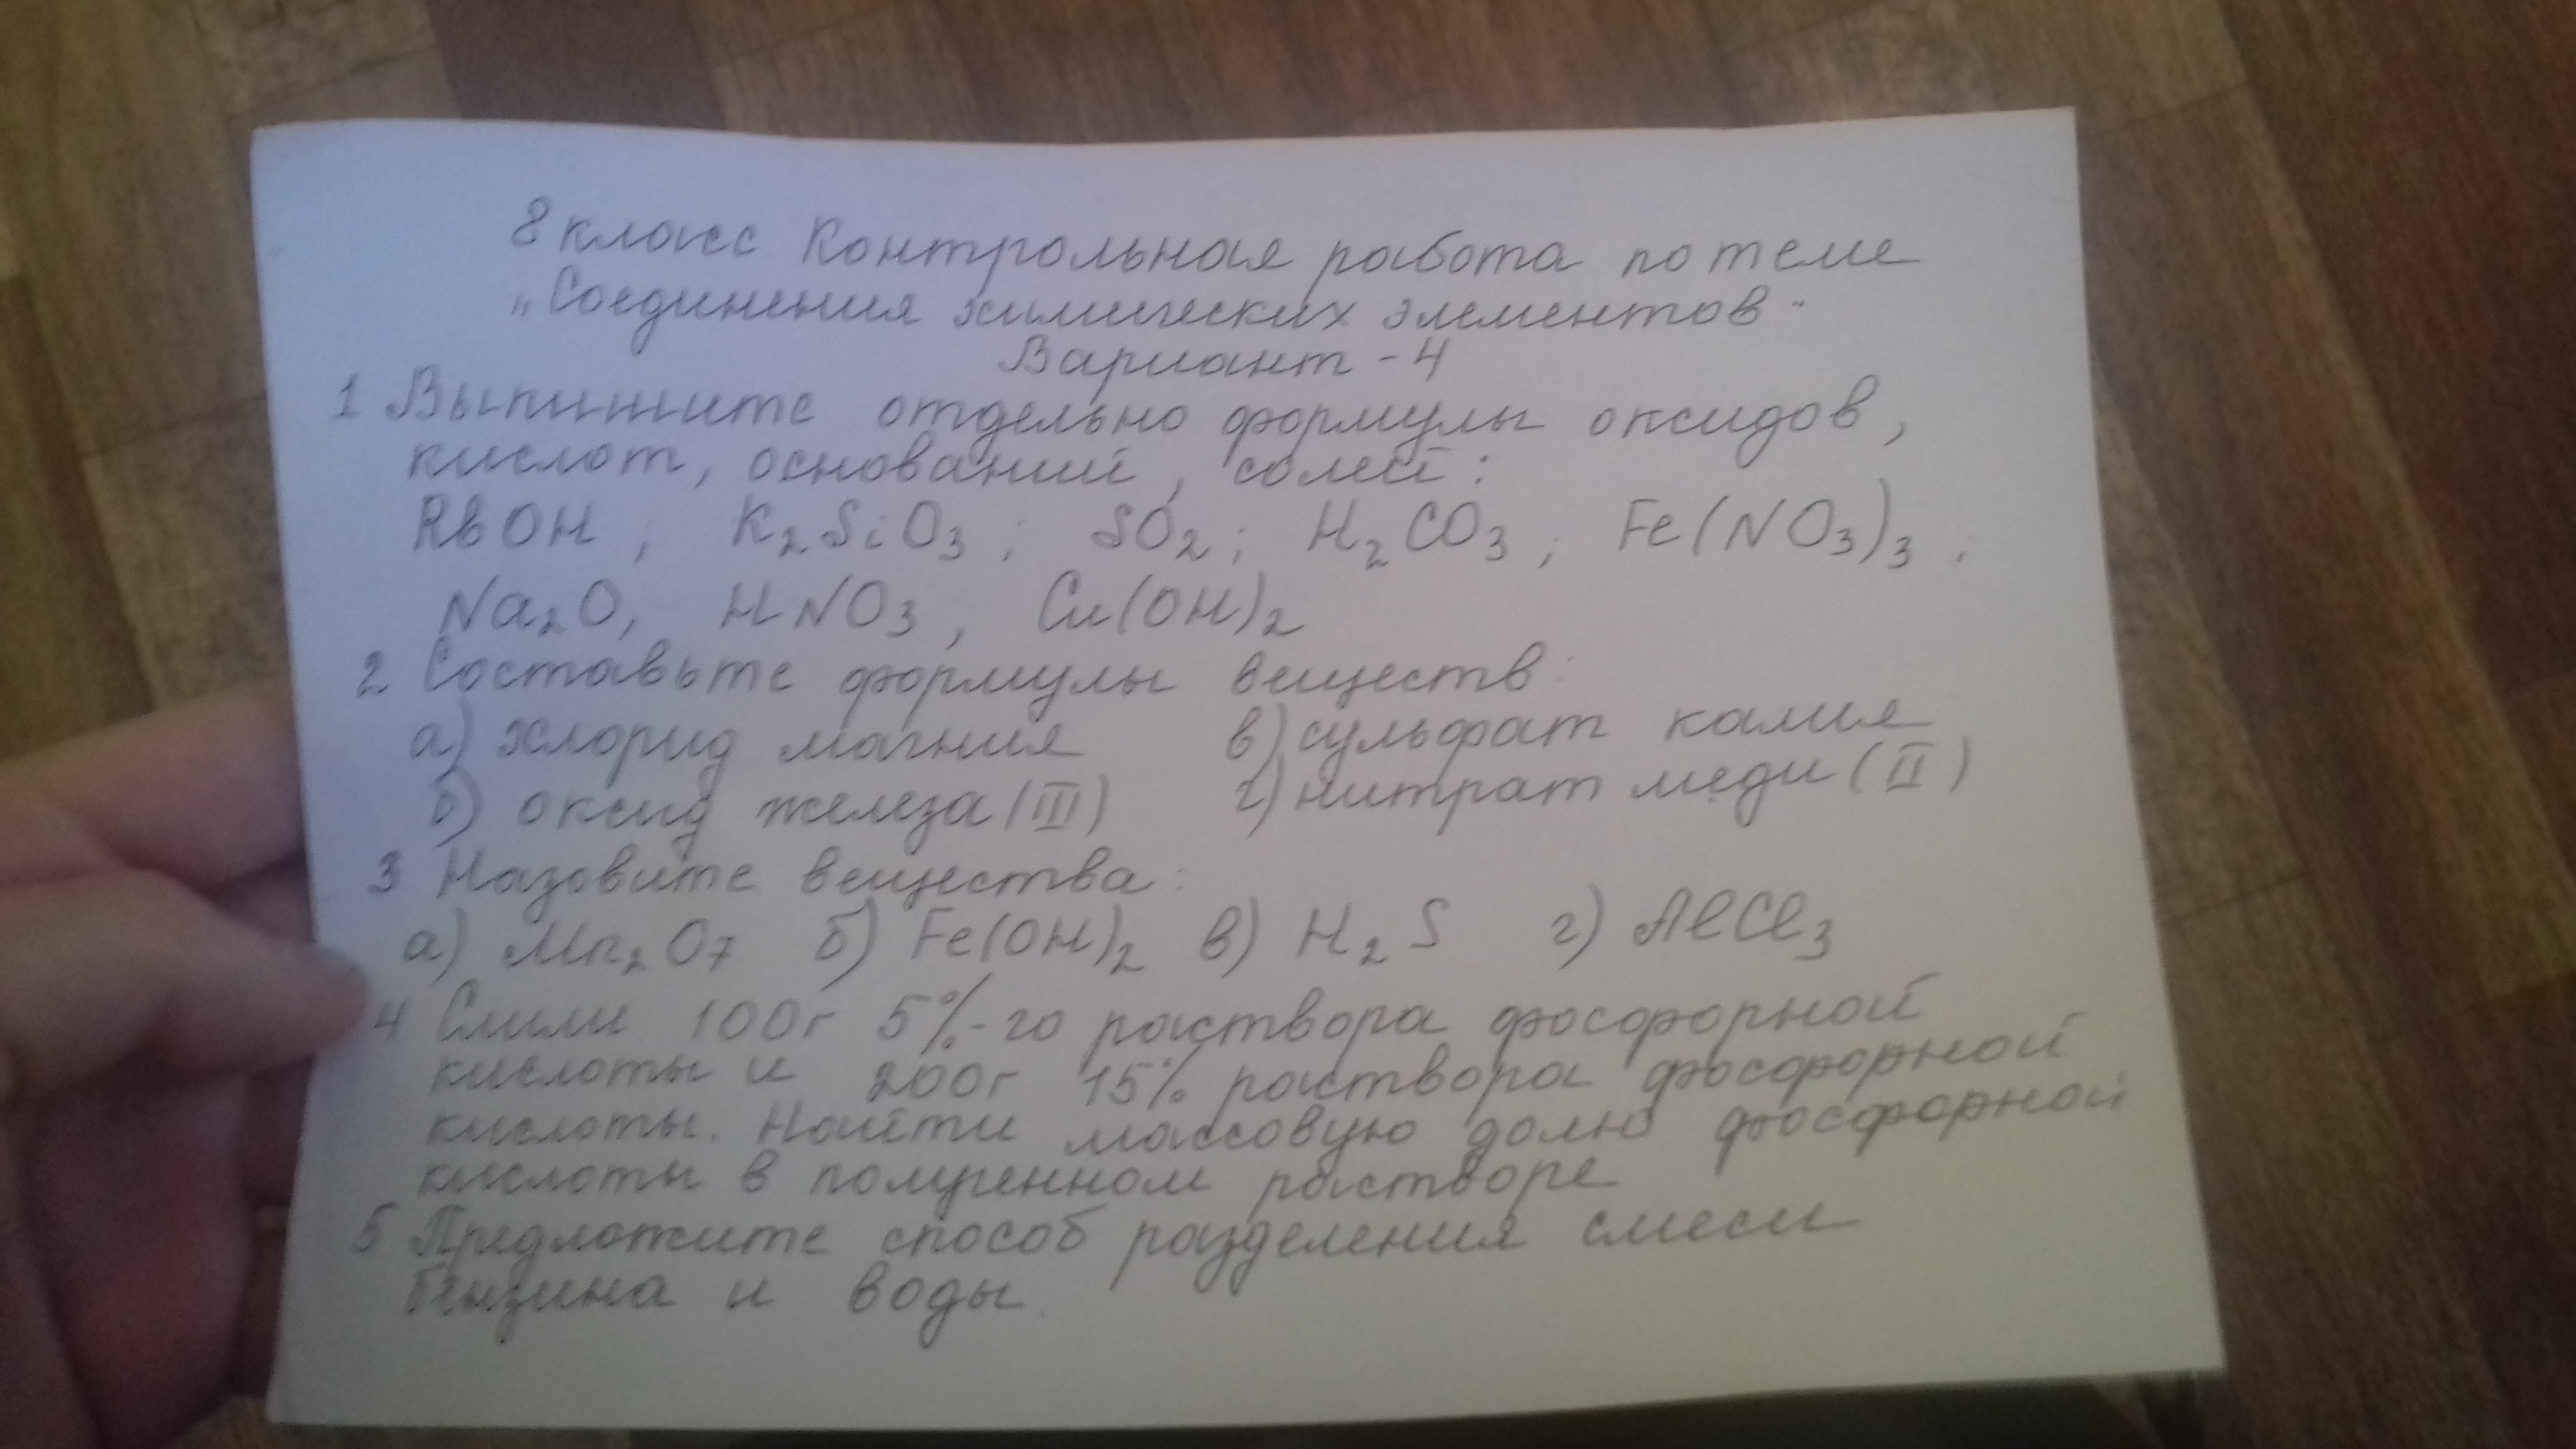 8 класс Контрольная работа по теме
„Соединения химических элементов"
Вариант - 4
1 Выпишите отдельно формулы оксидов,
кислот, оснований, солей:
RbOH ; K₂SiO₃ ; SO₂ ; H₂CO₃ ; Fe(NO₃)₃ ;
Na₂O, HNO₃ , Cu(OH)₂
2 Составьте формулы веществ:
а) хлорид магния в) сульфат калия
б) оксид железа (III) г) нитрат меди (II)
3 Назовите вещества:
а) Mn₂O₇ б) Fe(OH)₂ в) H₂S г) AlCl₃
4 Слили 100г 5%-го раствора фосфорной
кислоты и 200г 15% раствора фосфорной
кислоты. Найти массовую долю фосфорной
кислоты в полученном растворе
5 Предложите способ разделения смеси
бензина и воды.